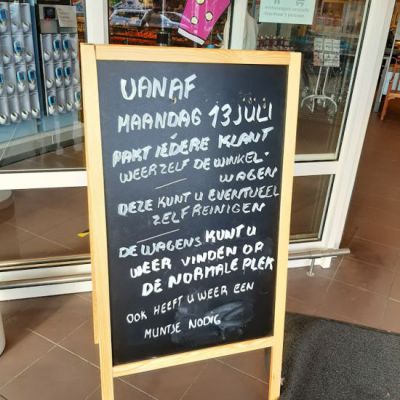 VANAF
MAANDAG 13 JULI
PAKT IEDERE KLANT
WEER ZELF DE WINKEL-
WAGEN
DEZE KUNT U EVENTUEEL
ZELF REINIGEN
DE WAGENS KUNT U
WEER VINDEN OP
DE NORMALE PLEK
OOK HEEFT U WEER EEN
MUNTJE NODIG